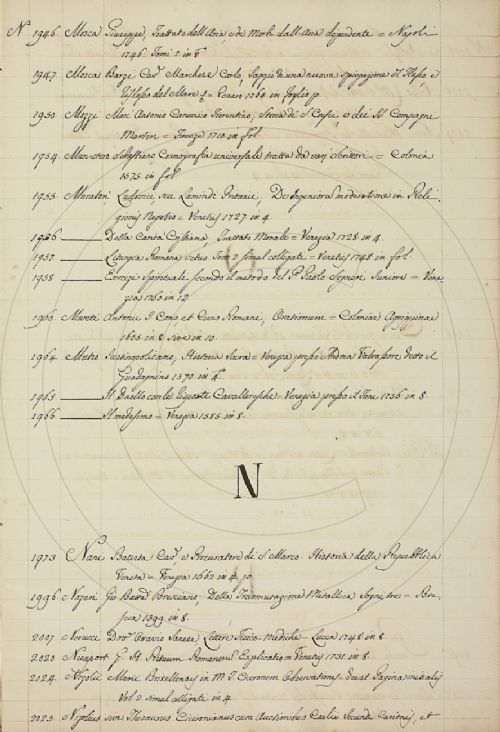 N 1946 Mosca Giuseppe, Trattato dell'Aria, e de Morbi dall'Aria dipendente = Napoli
1746 Tomi 2 in 8
1947 Mosca Barzi Cav.r Marchese Carlo, Saggio di una nuova spiegazione del Flusso, e
Riflusso del Mare = Pesaro 1764 in foglio p
1950 Mozzi Marc Antonio Canonico Fiorentino, Storia di S. Cresci, e dei SS. Compagni
Martiri = Firenze 1710 in fol.
1954 Munstero Sebastiano Cosmografia universale tratta da varj Scrittori = Colonia
1575 in fol
1955 Muratori Ludovici, seu Lamindi Pritanii, De Ingeniorum moderatione in Reli-
gionis Negotio = Venetiis 1727 in 4
1956 ______ Della Carità Cristiana, Trattato Morale = Venezia 1723 in 4
1957 ______ Liturgia Romana Vetus Tom 2 simul colligati = Venetiis 1748 in fol
1958 ______ Esercizj Spirituali secondo il metodo del P. Paolo Segneri Juniore = Vene-
zia 1760 in 12
Mureti Antonii J. C. et Civis Romani, Orationum = Coloniae Agrippinae
1605 in 8
1964 Mutio Justinopolitano, Historia Sacra = Venezia presso Andrea Valvassore detto il
Guadagnino 1570 in 4
______ Il Duello con le Risposte Cavalleresche = Venezia in 8
1966 ______ Il medesimo = Venezia 1585 in 8
N
1973 Nani Batista Cav.r e Procuratore di S. Marco. Historia della Republica
Veneta = Venezia 1662 in 4 p
1996 Nazari Gio Batta Bresciano, Della Trasmutazione Metallica Sogni tre = Bre-
scia 1599 in 8
Nerucci Dott.r Ottavio Sanese Lettere Fisico-Mediche = Lucca 1748 in 8
Romanorum Explicatio = Venetiis 1731 in 8
2024 Nizolii Marii Brixellensis in M. T. Ciceronem Observationes
Vol. 2 simul colligati in 4
2025 Nizolius sive Thesaurus Ciceronianus cum Auctionibus Caelii Secundi Curionis, et